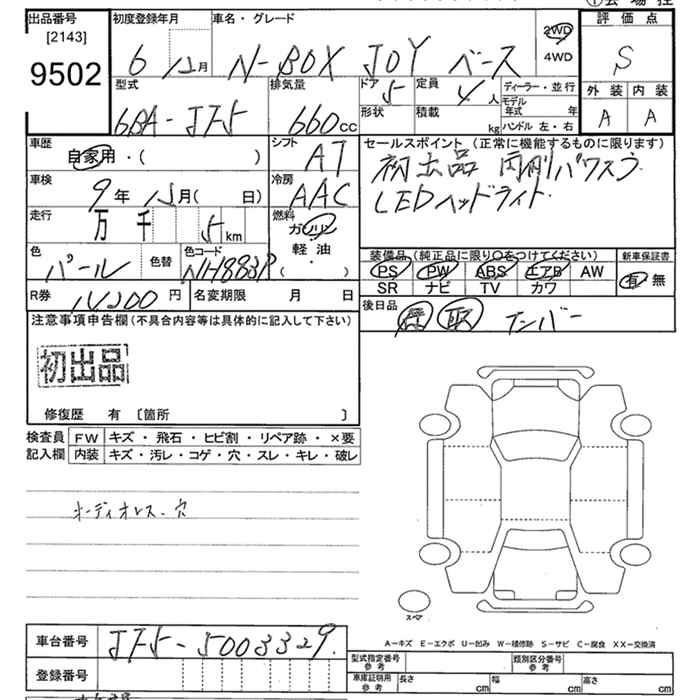 出品番号 初度登録年月 車名・グレード 2WD 評価点
[2143]
9502 6 12月 N-BOX JOY ベース 4WD S
型式 排気量 ドア 定員 ディーラー・並行 外装 内装
6BA-JF5 660cc 5 4人 モデル年式 年 A A
形状 積載 kg ハンドル 左・右
車歴 シフト セールスポイント (正常に機能するものに限ります)
自家用・( ) AT 初出品 両側パワスラ
車検 冷房 LEDヘッドライト
9年 12月( 日) AAC
走行 燃料
万 千 5km ガソリン
軽・油
( ・ )
色 色替 色コード 装備品 (純正品に限り○をつけてください) 新車保証書
パール NH883P PS PW ABS エアB AW 有 無
SR ナビ TV カワ
R券 円 名変期限 月 日 後日品
保 取 ナンバー
注意事項申告欄 (不具合内容等は具体的に記入して下さい)
初出品
修復歴 有 〔箇所 〕
検査員 FW キズ・飛石・ヒビ割・リペア跡・×要
記入欄 内装 キズ・汚レ・コゲ・穴・スレ・キレ・破レ
オーディオレス・穴
スペア
A-キズ E-エクボ U-凹み W-補修跡 S-サビ C-腐食 XX-交換済
車台番号 JF5-5003329
型式指定番号 参考 類別区分番号 参考
登録番号 車庫証明用 参考 長さ cm 幅 cm 高さ cm